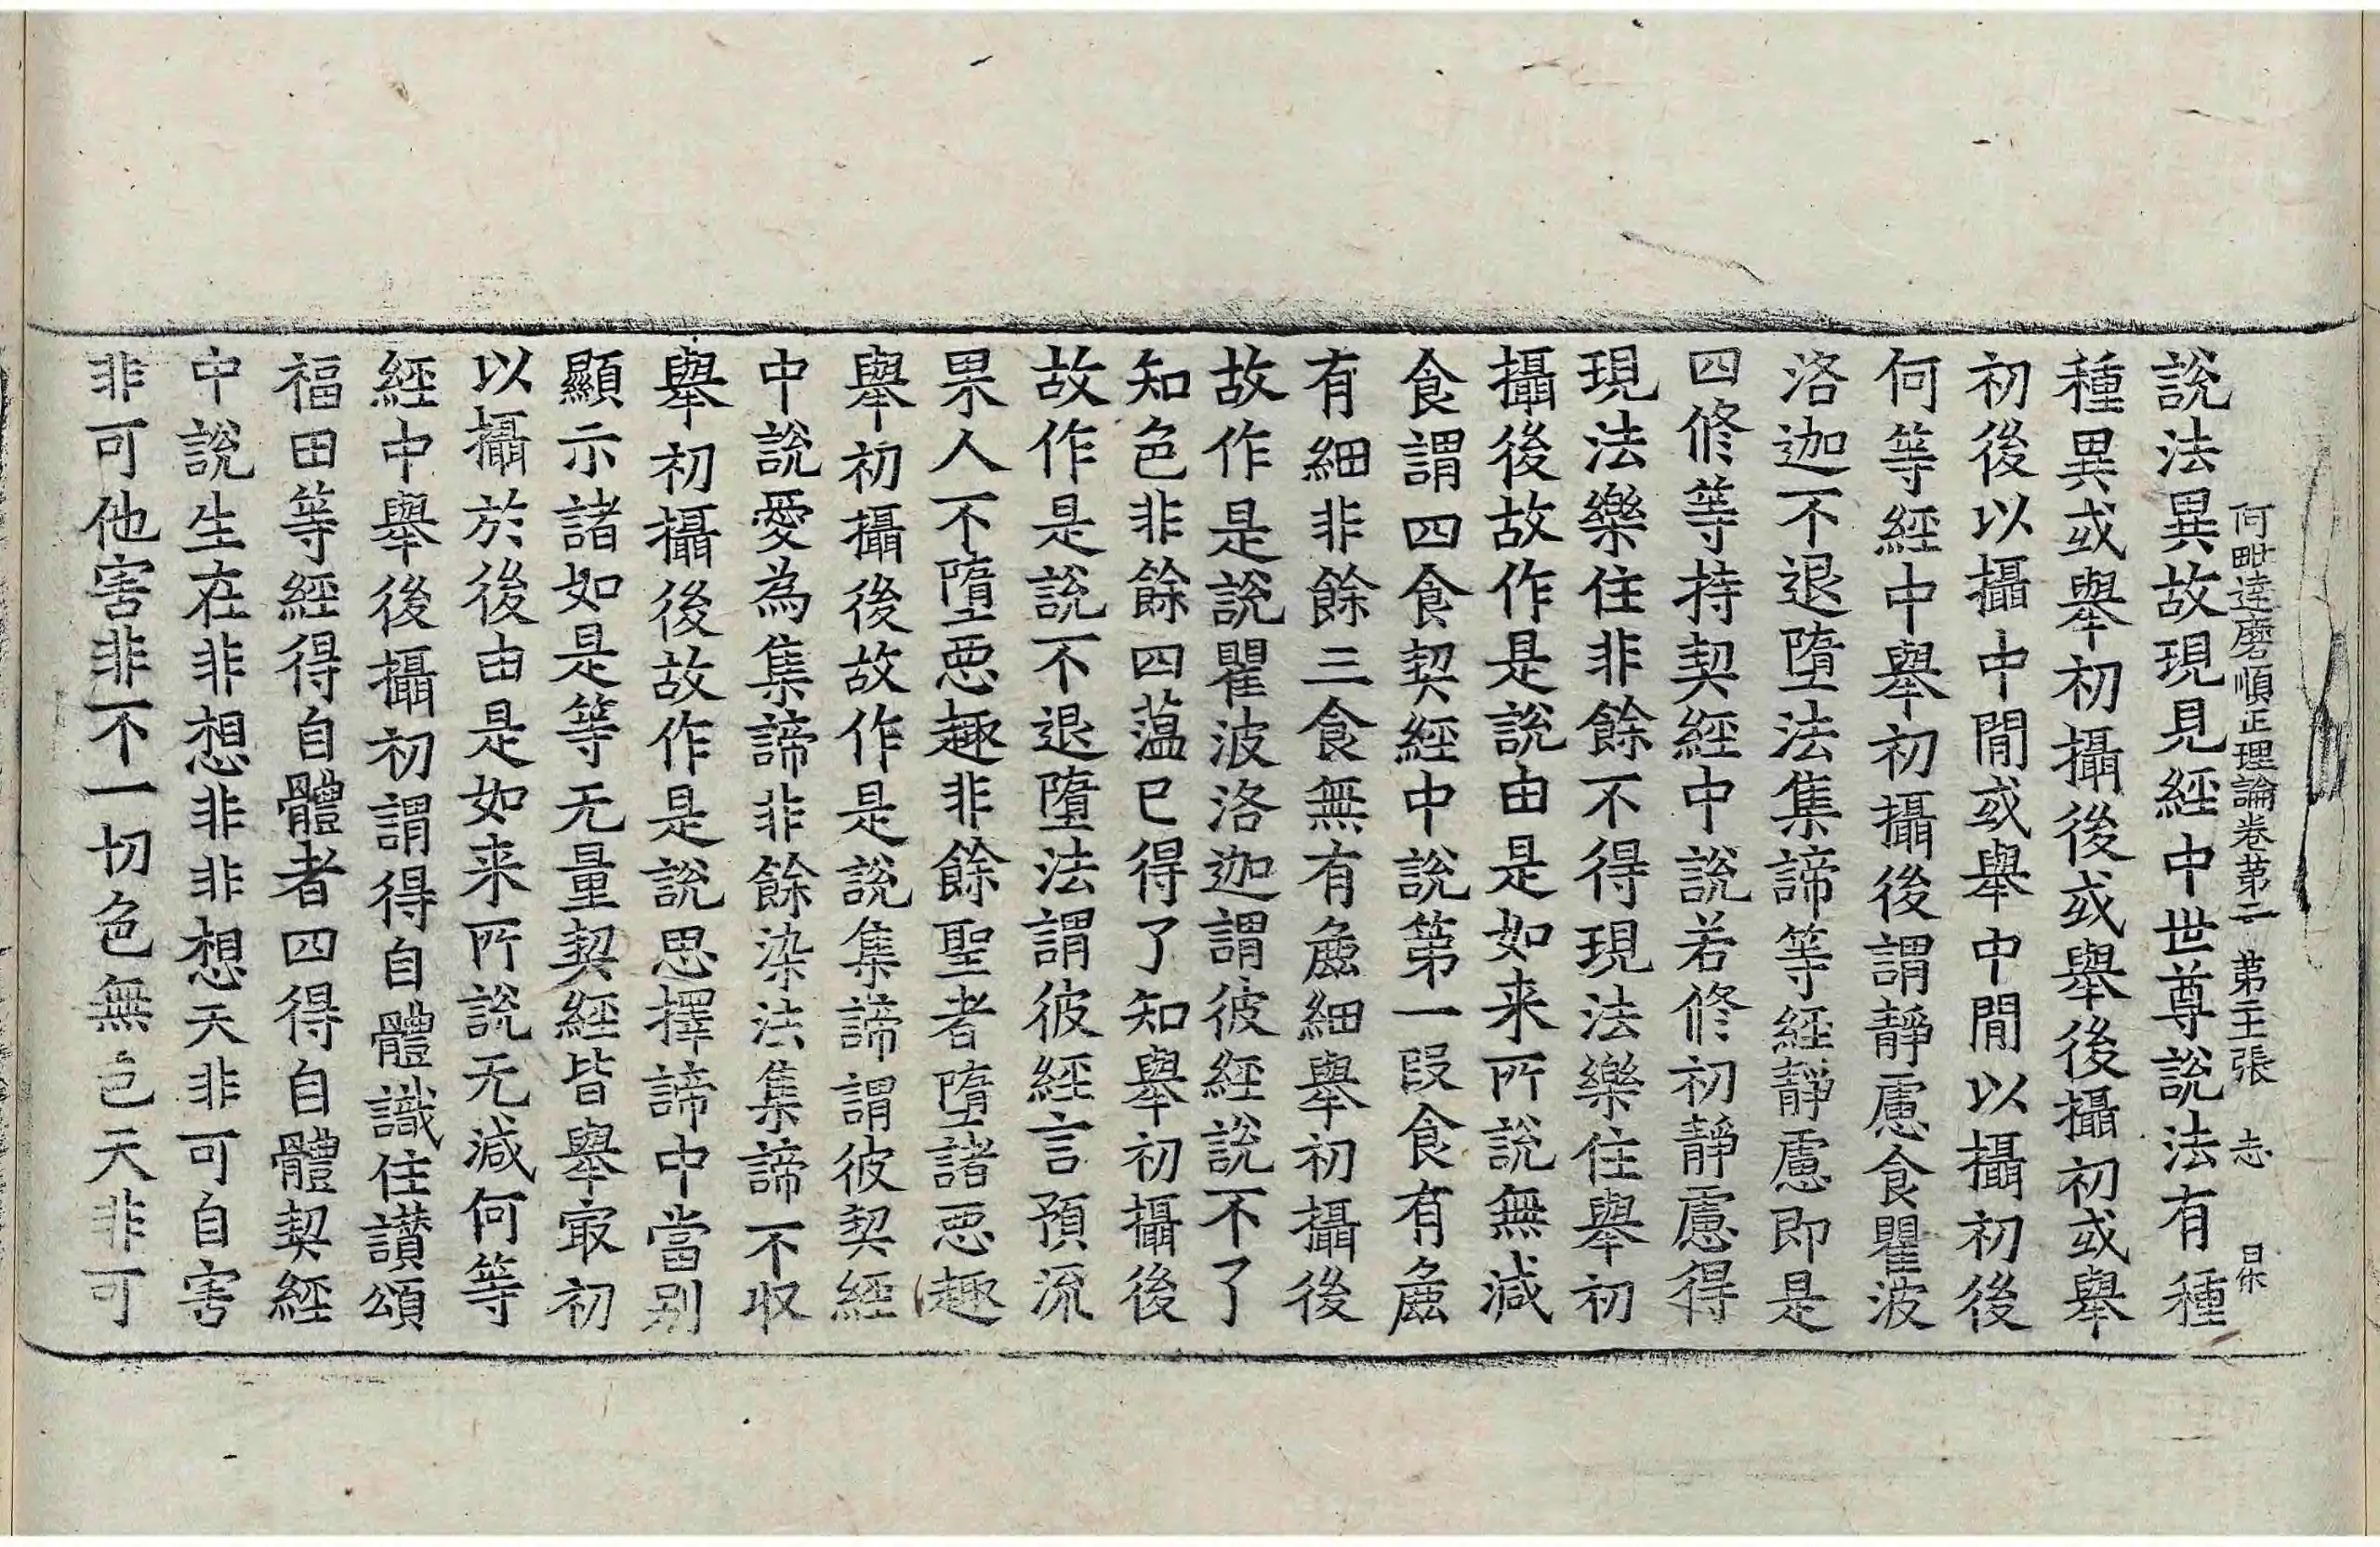 說法異故現見經中世尊說法有種
阿毗達磨順正理論卷苐二　苐三張　志
種異或舉初攝後或舉後攝初或舉
初後以攝中閒或舉中閒以攝初後
何等經中舉初攝後謂靜慮食瞿波
洛迦不退墮法集諦等經靜慮即是
四修等持契經中說若修初靜慮得
現法樂住非餘不得現法樂住舉初
攝後故作是說由是如来所說無減
食謂四食契經中說第一段食有麁
有細非餘三食無有麁細舉初攝後
故作是說瞿波洛迦謂彼經說不了
知色非餘四薀已得了知舉初攝後
故作是說不退墮法謂彼經言預流
果人不墮惡趣非餘聖者墮諸惡趣
舉初攝後故作是說集諦謂彼契經
中說愛為集諦非餘染法集諦不収
舉初攝後故作是說思擇諦中當別
顯示諸如是等无量契經皆舉㝡初
以攝於後由是如来所說无減何等
經中舉後攝初謂得自體識住讃頌
福田等經得自體者四得自體契經
中說生在非想非非想天非可自害
非可他害非不一切色無色天非可